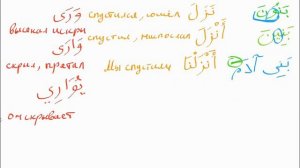 بَنُونَ نَزَلَ спустился, сошёл وَرَى
высекал искры
بَنِينَ أَنْزَلَ спустил, ниспослал وَارَى
بَنِي آدَمَ أَنْزَلْنَا Мы спустили скрыл, прятал
يُوَارِي
он скрывает